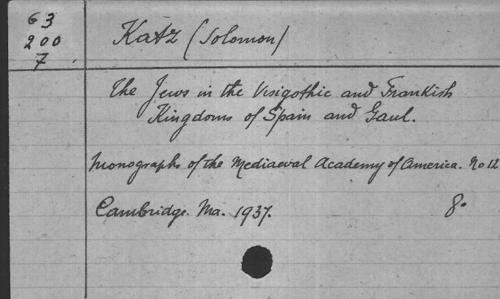 63
200
7
Katz (Solomon)
The Jews in the Visigothic and Frankish
Kingdoms of Spain and Gaul.
Monographs of the Mediaeval Academy of America. No 12
Cambridge. Ma. 1937. 8º